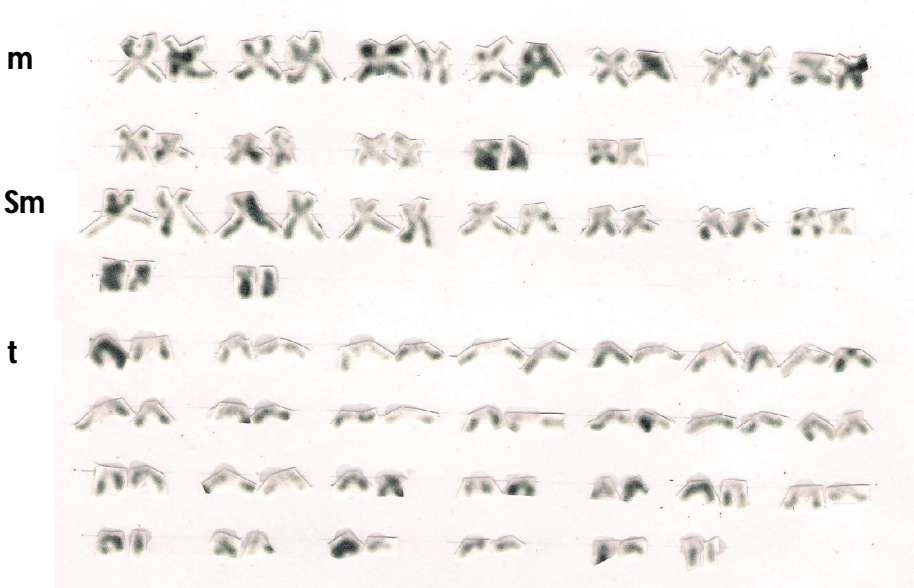 m
Sm
t